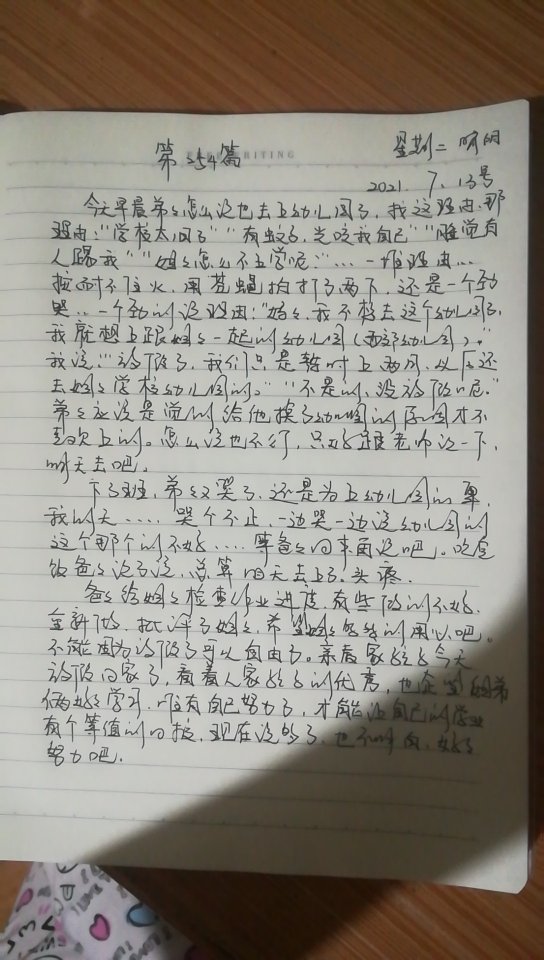 第354篇
WRITING
星期二 晴
2021. 7. 13号
今天早晨弟弟怎么说也去上幼儿园了，找这理由那
理由："学校太旧了""有蚊子，光咬我自己""睡觉有
人踢我""姐姐怎么不上学呢？"……一堆理由…
按耐不住火，用苍蝇拍打了两下，还是一个劲
哭…一个劲的说理由："妈妈，我不想去这个幼儿园了，
我就想上跟姐姐一起的幼儿园（西部幼儿园）。"
我说："放假了，我们只是暂时上两月，以后还
去姐姐学校幼儿园的。""不是的，没放假呢。"
弟弟应该是觉的给他换了幼儿园的原因才不
喜欢上的。怎么说也不行，只好跟老师说一下，
明天去吧。
下了班，弟又哭了，还是为上幼儿园的事，
我的天……哭个不止，一边哭一边说幼儿园的
这个那个的不好……等爸爸回来再说吧。吃完
饭爸爸说了说，总算明天去上了。头疼.
爸爸给姐姐检查作业进度，有些做的不好，
重新做，批评了姐姐，希望姐姐的用心吧。
不能因为放假了可以自由了。亲戚家姐姐今天
放假回家了，看着人家姐姐的优秀，也希望姐弟
俩好好学习，唯有自己努力了，才能让自己的学业
有个等值的回报，现在说多了，也不明白，好好
努力吧.